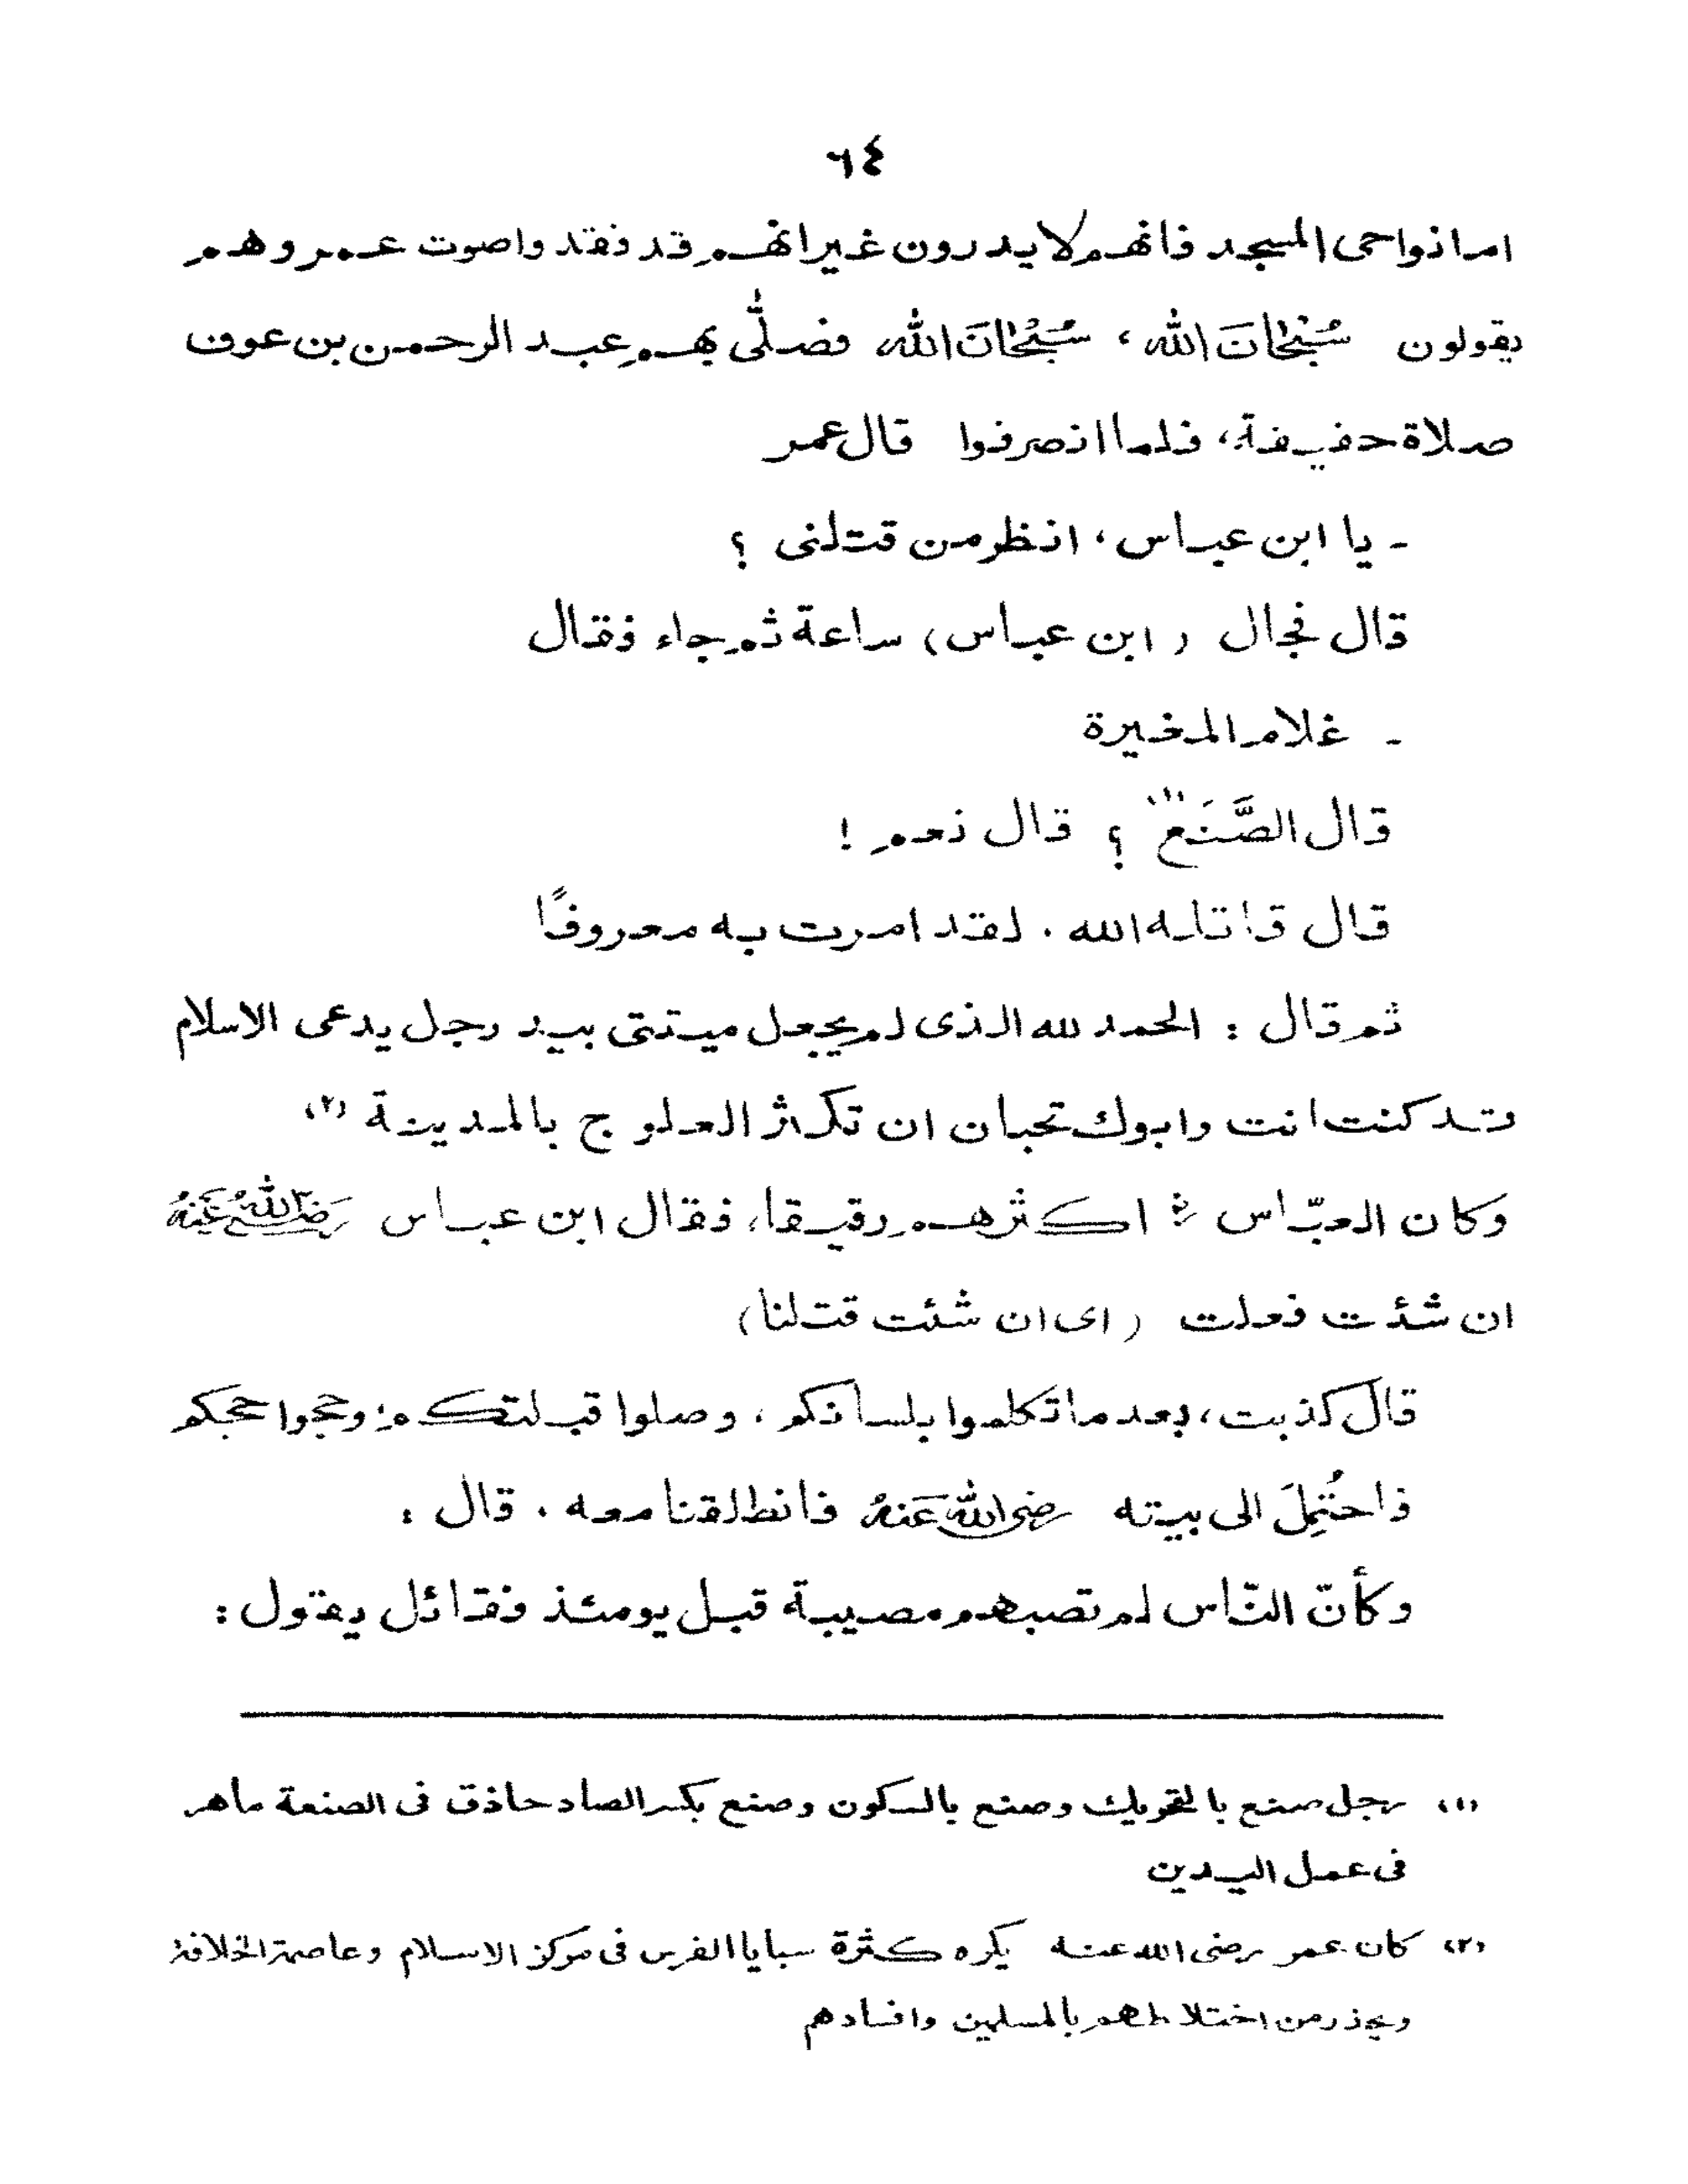 ٦٤
اما نواحى المسجد فانهم لا يدرون غير انهم قد فقدوا صوت عمر وهم
يقولون سُبْحَانَ الله، سُبْحَانَ الله فصلّٰى بهم عبد الرحمن بن عوف
صلاة خفيفة، فلما انصرفوا قال عمر
- يا ابن عباس، انظر من قتلنى ؟
قال فجال (ابن عباس) ساعة ثم جاء فقال
- غلام المغيرة
قال الصَّنَع (١) ؟ قال نعم !
قال قاتله الله . لقد امرت به معروفًا
ثم قال : الحمد لله الذى لم يجعل ميتتى بيد رجل يدعى الاسلام
وقد كنت انت وابوك تحبان ان تكثر العلوج بالمدينة (٢)
وكان العبّاس رض اكثرهم رقيقا، فقال ابن عباس رَضِىَ اللهُ عَنْهُ
ان شئت فعلت (اى ان شئت قتلنا)
قال كذبت، بعد ما تكلموا بلسانكم، وصلوا قبلتكم، وحجوا حجكم
فاحتُمِلَ الى بيته رضى الله عَنْهُ فانطلقنا معه . قال :
وكأنّ النّاس لم تصبهم مصيبة قبل يومئذ فقائل يقول :
(١) رجل صنع بالتحريك وصنع بالسكون وصنع بكسر الصاد حاذق فى الصنعة ماهر
فى عمل اليدين
(٢) كان عمر رضى الله عنه يكره كثرة سبايا الفرس فى مركز الاسلام وعاصمة الخلافة
ويحذر من اختلاطهم بالمسلمين وافسادهم